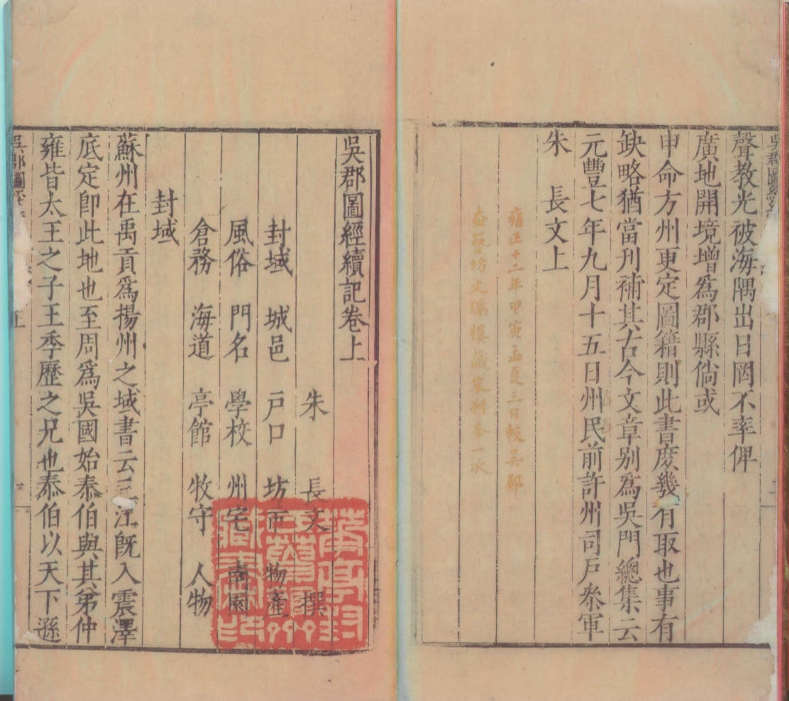 聲教光被海隅出日罔不率俾
廣地開境增為郡縣倘或
申命方州更定圖籍則此書庶幾有取也事有
缺略猶當刋補其古今文章别為吳門總集云
元豐七年九月十五日州民前許州司戶參軍
朱長文上
雍正十二年甲寅孟夏三日較吳郡
吳郡圖經續記卷上
朱長文撰
封域 城邑 戸口 坊市 物產
風俗 門名 學校 州宅 南園
倉務 海道 亭館 牧守 人物
封域
蘇州在禹貢為揚州之域書云三江旣入震澤
底定卽此地也至周為吳國始泰伯與其弟仲
雍皆太王之子王季歷之兄也泰伯以天下遜